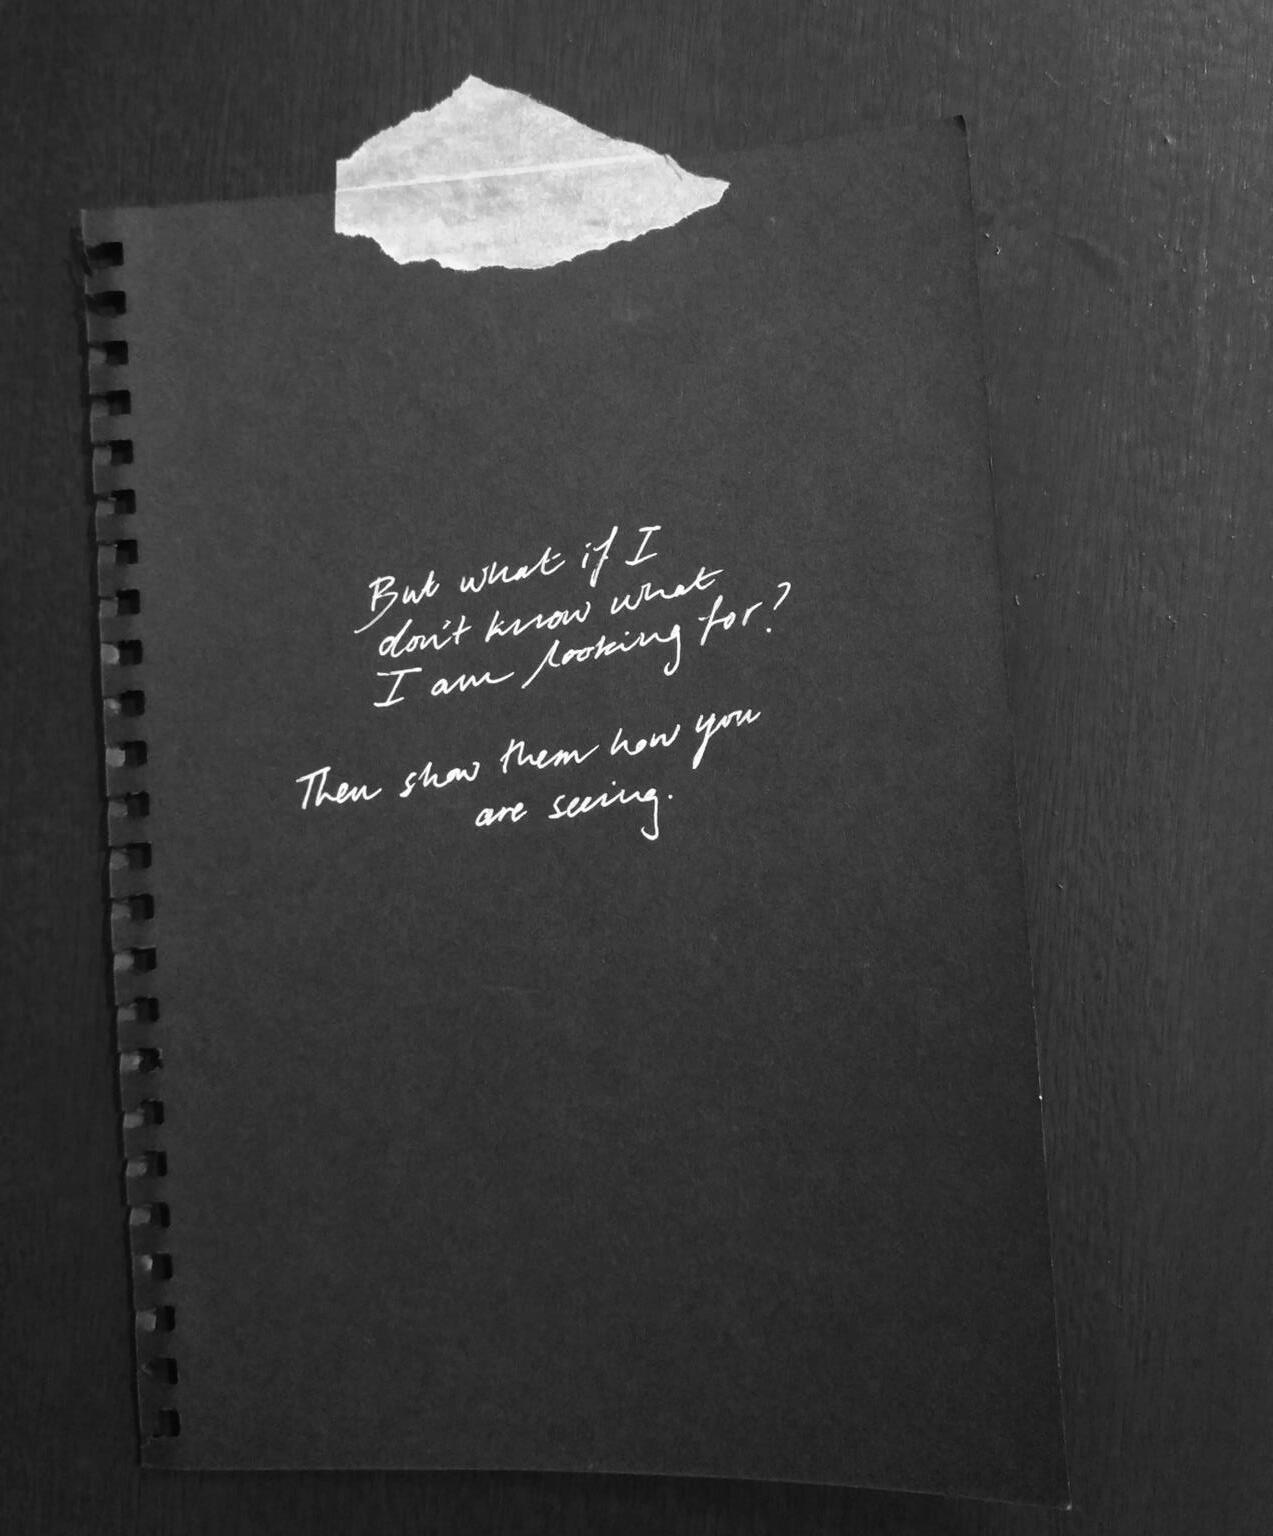 But what if I
don't know what
I am looking for?
Then show them how you
are seeing.